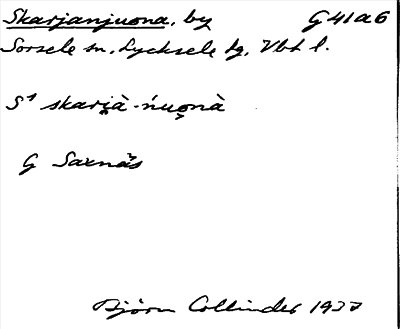 Skarjanjuona, by G41a6
Sorsele sn, Lycksele tg, Vbt l.
S¹ skari̯à-ńuǫnà
G Saxnäs
Björn Collinder 1937